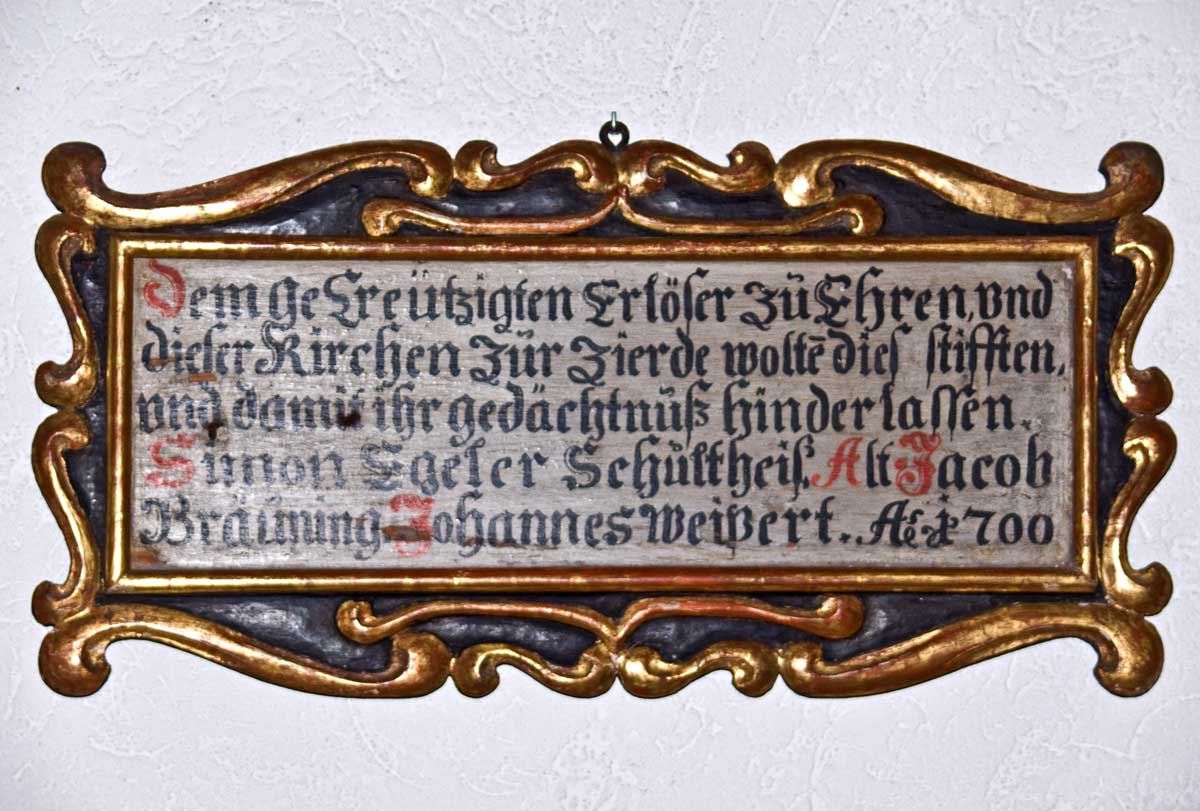 Dem geCreützigten Erlöser Zů Ehren, vnd
dieser Kirchen Zür Zierde woltē dies stifften,
vnd damit ihr gedächtnüß hinderlassen.
Simon Egeler Schůltheiß. Alt Jacob
Bräuning Johannes Weippert. Aō 1700